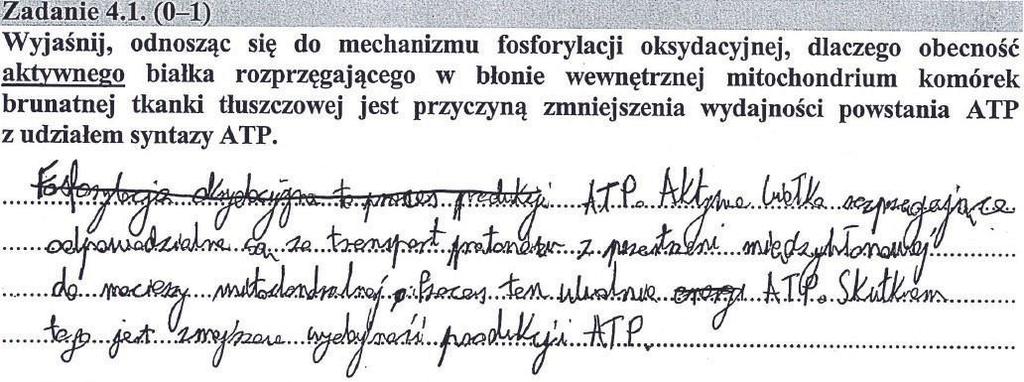 Zadanie 4.1. (0–1)
Wyjaśnij, odnosząc się do mechanizmu fosforylacji oksydacyjnej, dlaczego obecność
aktywnego białka rozprzęgającego w błonie wewnętrznej mitochondrium komórek
brunatnej tkanki tłuszczowej jest przyczyną zmniejszenia wydajności powstania ATP
z udziałem syntazy ATP.
Fosforylacja oksydacyjna to proces produkcji ATP. Aktywne białka rozprzęgające
odpowiedzialne są za transport protonów z przestrzeni międzybłonowej
do macierzy mitochondrialnej. Proces ten uwalnia energ ATP. Skutkiem
tego jest produkcji ATP.